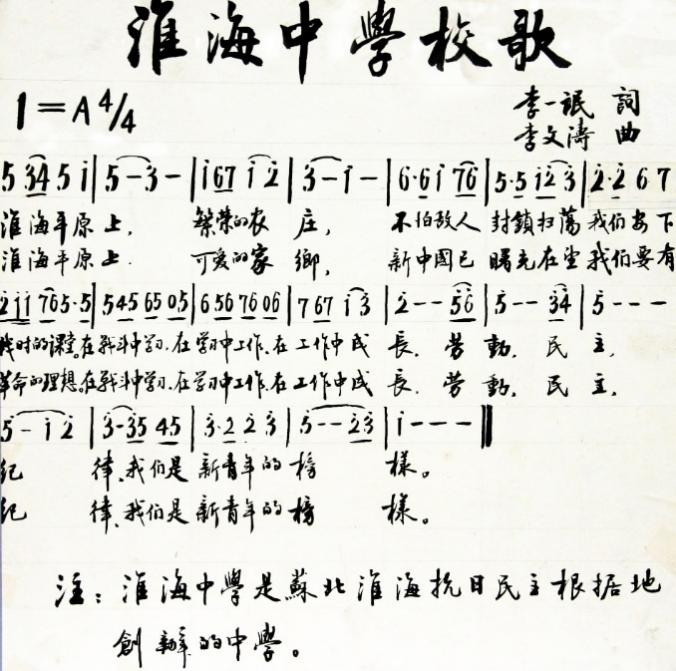 淮海中學校歌
1=A 4/4
李一氓 詞
李文濤 曲
5 34 5 i | 5-3- | i67 i 2 | 3-i- | 6·6 i 76 | 5·5 i2 3 | 2·2 6 7
淮海平原上, 繁榮的农庄, 不怕敌人封鎖扫蕩我们安下
淮海平原上. 可爱的家鄉, 新中國已曙光在望我们要有
2 i i 765·5 | 545 65 05 | 6 56 76 06 | 7 67 i 3 | 2--56 | 5--34 | 5---
战时的课堂。在战斗中学习.在学习中工作.在工作中成長.劳動.民主.
革命的理想。在战斗中学习.在学习中工作.在工作中成長.劳動.民主.
5-i 2 | 3-35 45 | 3·2 2 3 | 5--23 | i--- ‖
纪律、我们是新青年的榜樣。
纪律、我们是新青年的榜樣。
注：淮海中學是蘇北淮海抗日民主根据地
創辦的中學。